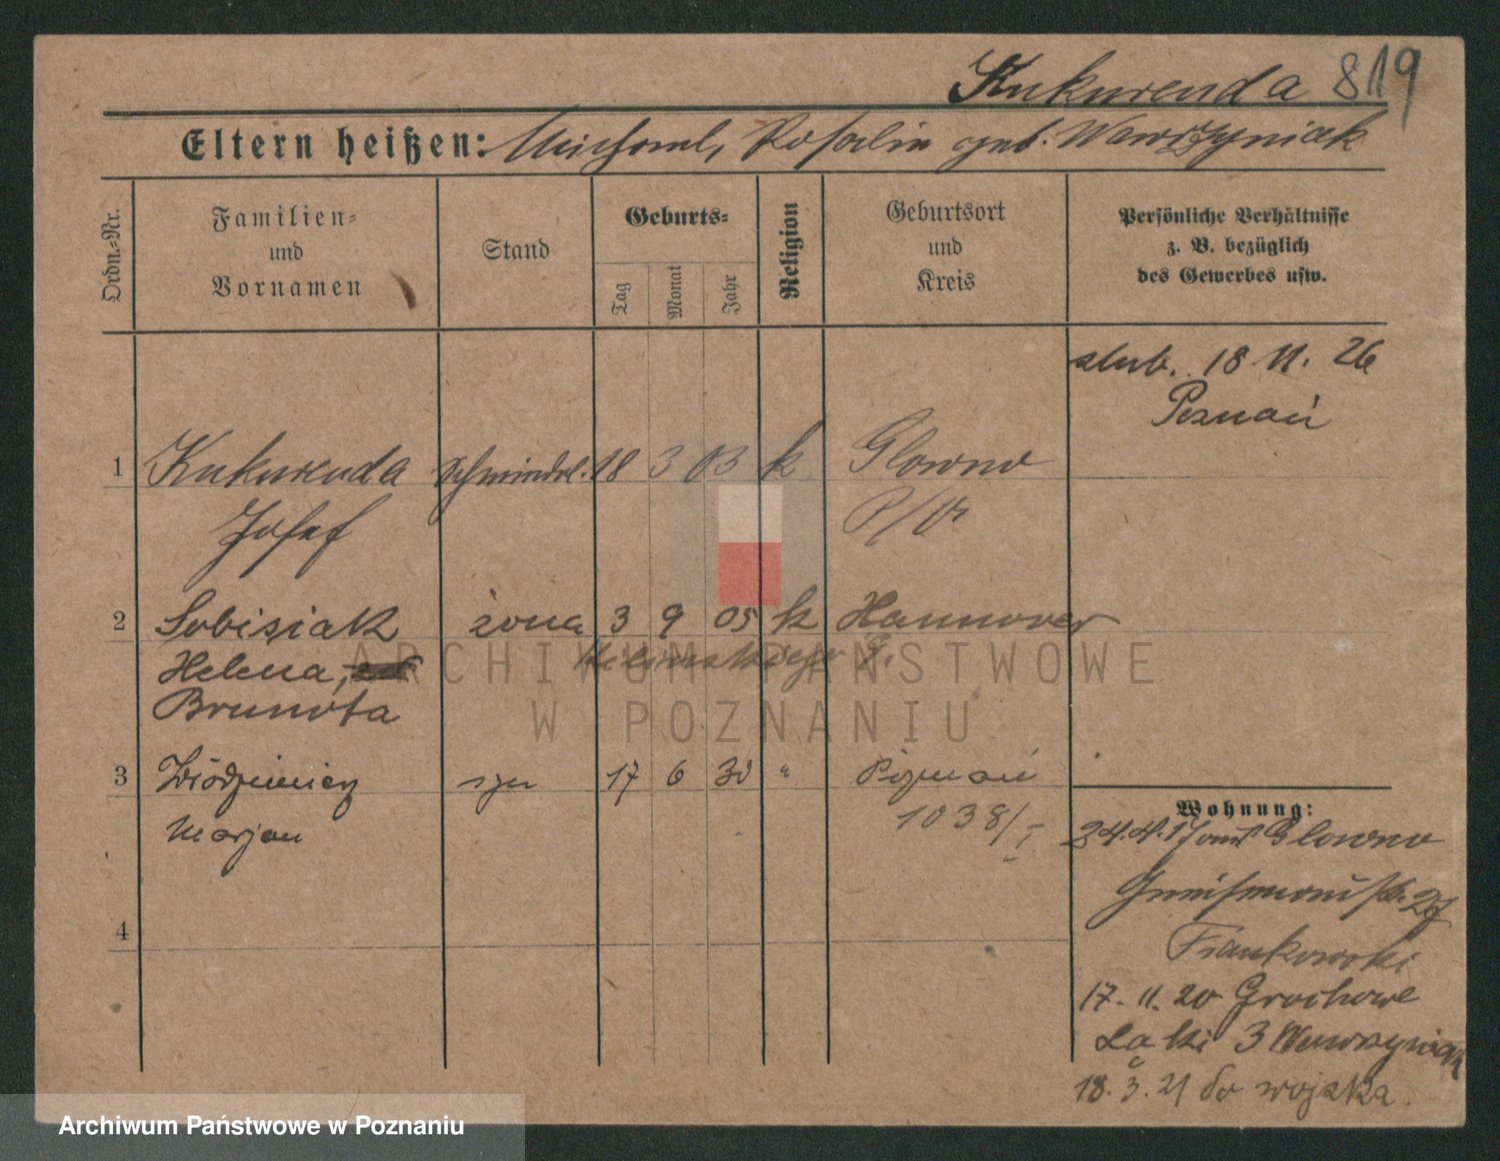 Kukurenda 819
Eltern heißen: Michael, Rosalie geb. Wawrzyniak
Ordn.=Nr.
Familien=
und
Vornamen
Stand
Geburts=
Tag
Monat
Jahr
Religion
Geburtsort
und
Kreis
Persönliche Verhältnisse
z. B. bezüglich
des Gewerbes usw.
slub. 18 11. 26
Poznań
1 Kukurenda 18 3 03 k Glowno
Josef P/O
2 Sobisiak żona 3 9 05 k Hannover
Helena,
Brunota
ARCHIWUM PAŃSTWOWE
W POZNANIU
3 Włodzimierz syn 17 6 30 " Poznań
Marjan 1038/I
4
Wohnung:
24.4.17 Glowno
27
Frankowski
17. 11. 20 Grochowe
Łąki 3 Wawrzyniak
18. 3. 21 do wojska.
Archiwum Państwowe w Poznaniu